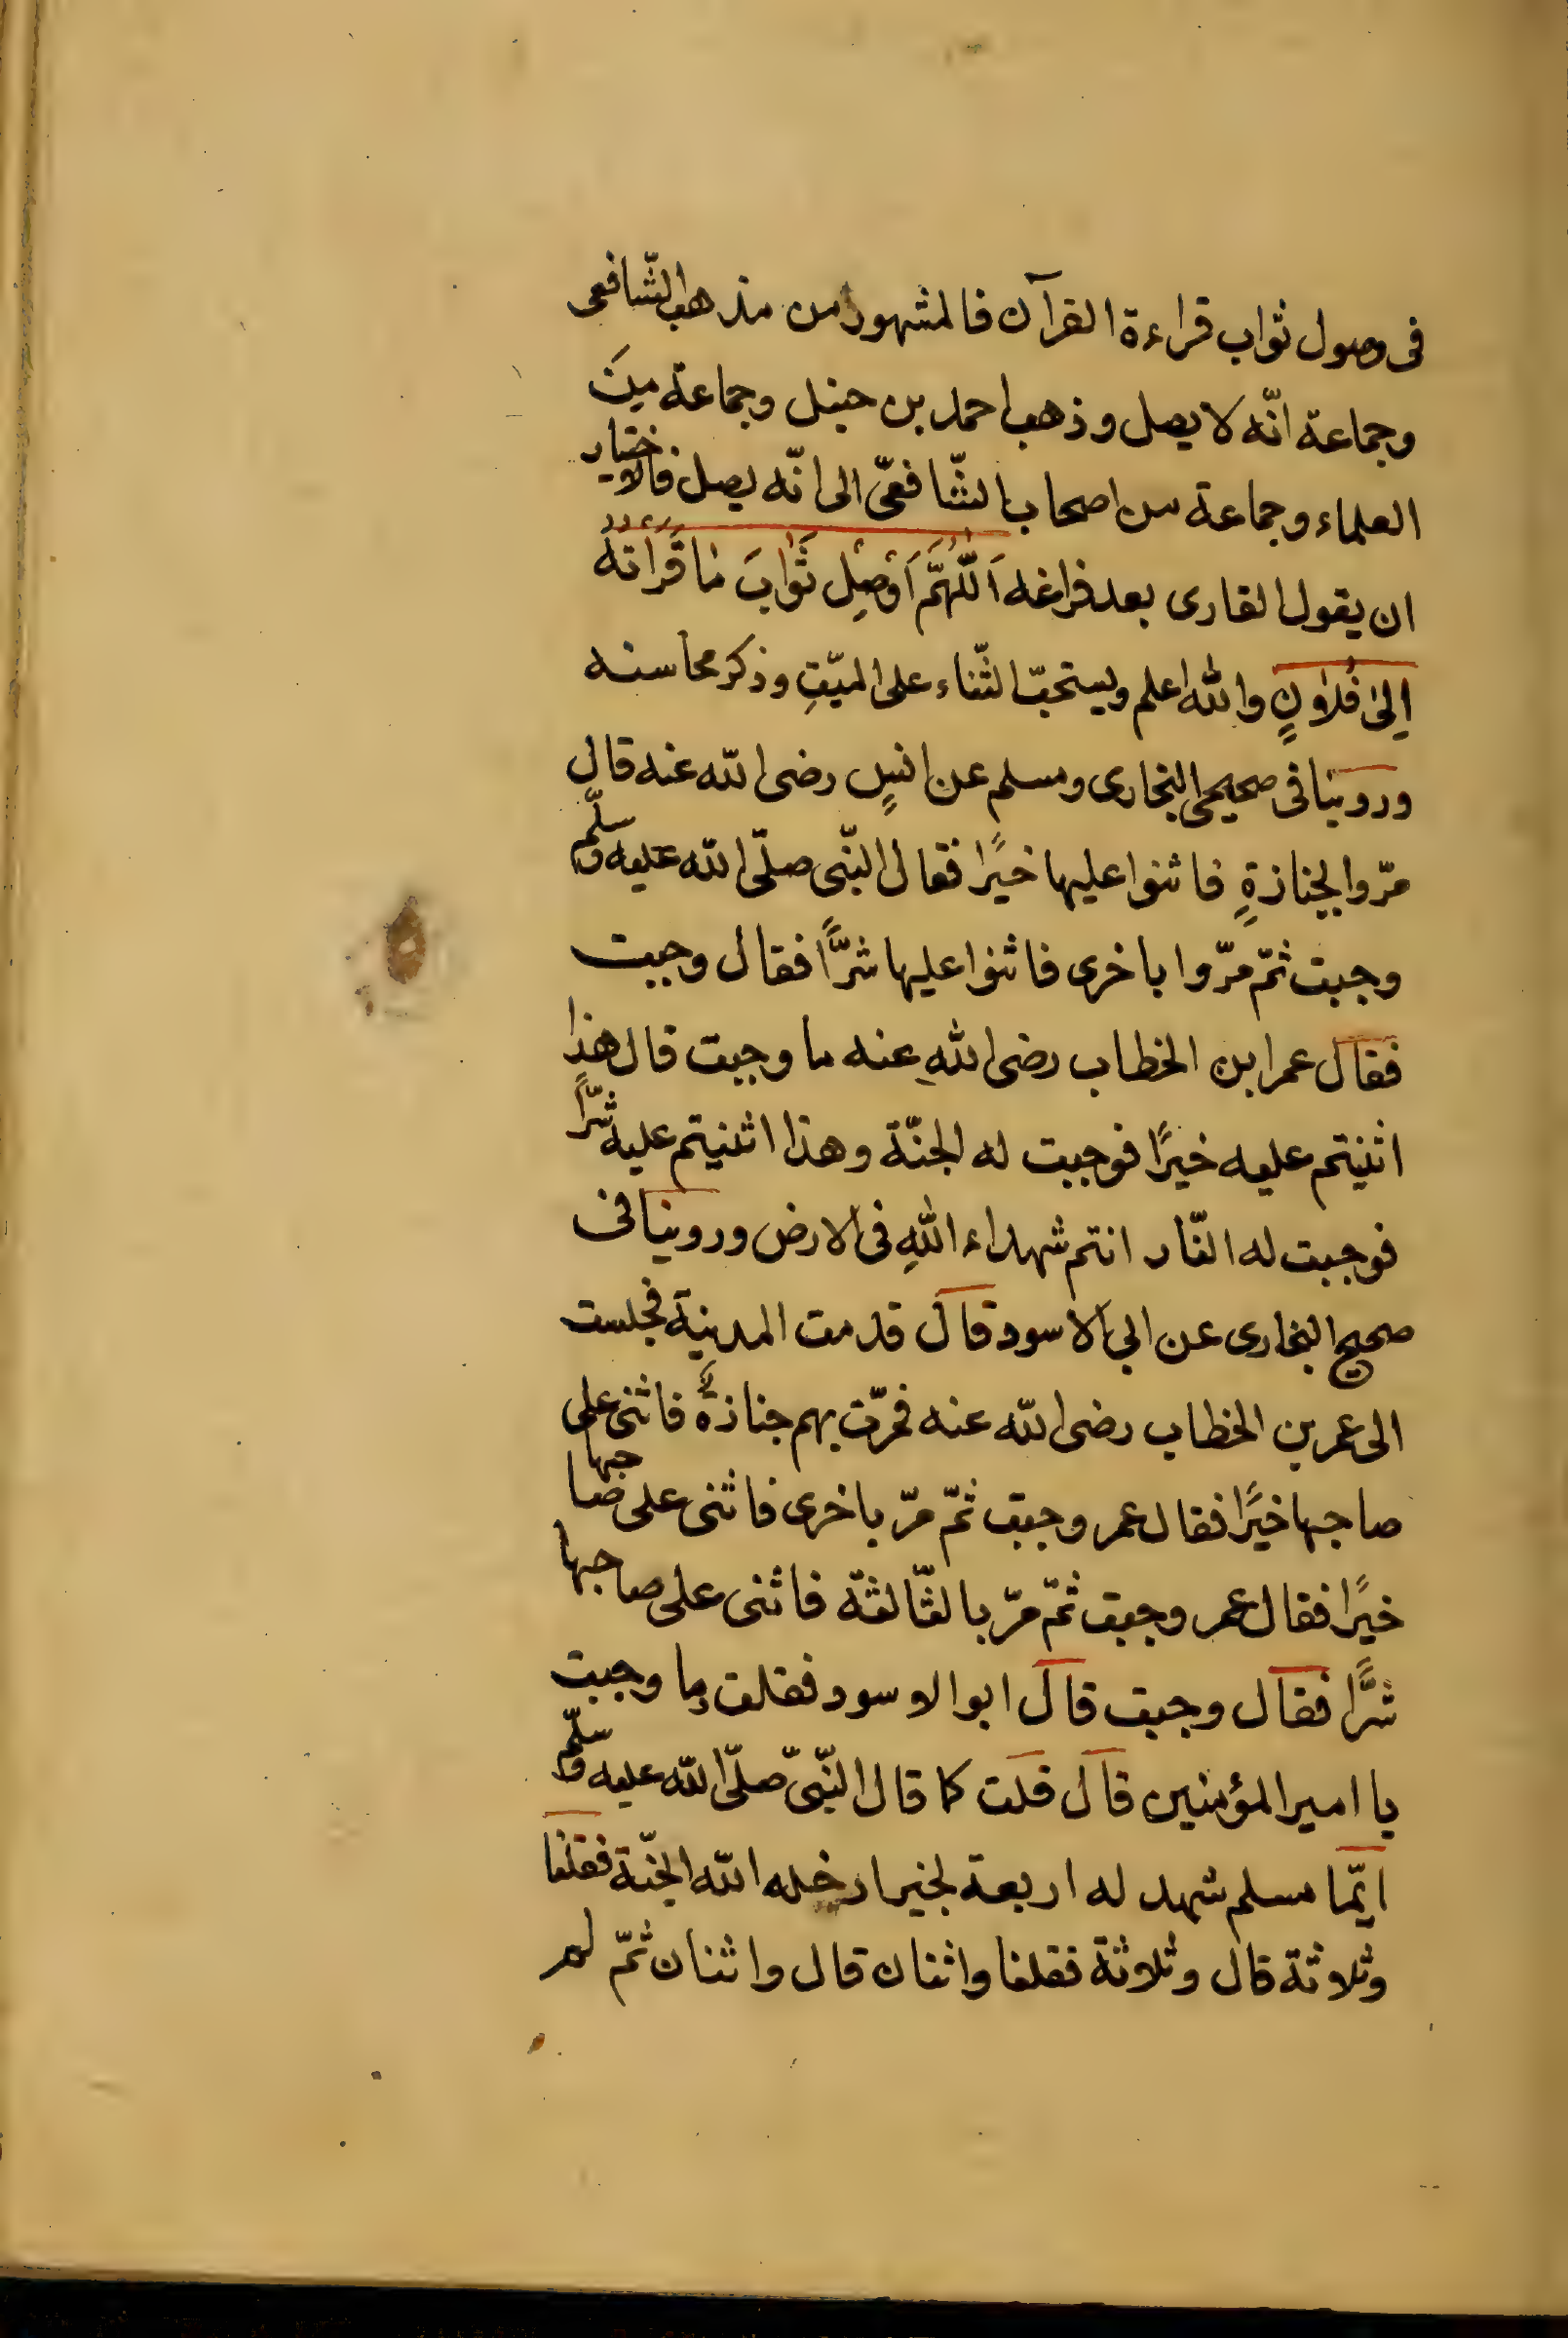 فى وصول ثواب قراءة القرآن فالمشهور من مذهب الشّافعى
وجماعة انّه لا يصل وذهب احمد بن حنبل وجماعة مِنَ
العلماء وجماعة من اصحاب الشّافعىّ الى انّه يصل فالاختيار
ان يقول القارى بعد فراغه اَللّٰهُمَّ اَوْصِلْ ثَوٰابَ مٰا قَرَأْتُهُ
اِلىٰ فُلاٰنٍ والله اعلم ويستحبّ الثّناء على الميّتِ وذكر محاسنه
وروينا فى صحيحى البخارى ومسلم عن انسٍ رضى الله عنه قال
مرّوا بجنازةٍ فاثنوا عليها خيرًا فقال النّبى صلّى الله عليه وسلّم
وجبت ثمّ مرّوا باخرى فاثنوا عليها شرًّا فقال وجبت
فقال عمر ابن الخطاب رضى اللهِ عنه ما وجبت قال هذا
اثنيتم عليه خيرًا فوجبت له الجنّة وهذا اثنيتم عليه شرًّا
فوجبت له النّار انتم شهداء اللهِ فى الارض وروينا فى
صحيح البخارى عن ابى الاسود قال قدمت المدينة فجلست
الى عمر بن الخطاب رضى الله عنه فمرّت بهم جنازةٌ فاثنى على
صاحبها خيرًا فقال عمر وجبت ثمّ مرّ باخرى فاثنى على صاحبها
خيرًا فقال عمر وجبت ثمّ مرّ بالثّالثة فاثنى على صاحبها
شرًّا فقال وجبت قال ابو الاسود فقلت وما وجبت
يا امير المؤمنين قال قلت كما قال النّبىّ صلّى الله عليه وسلّم
ايّما مسلم شهد له اربعة بخير ادخله الله الجنّة فقلنا
وثلاثة قال وثلاثة فقلنا واثنان قال واثنان ثمّ لم